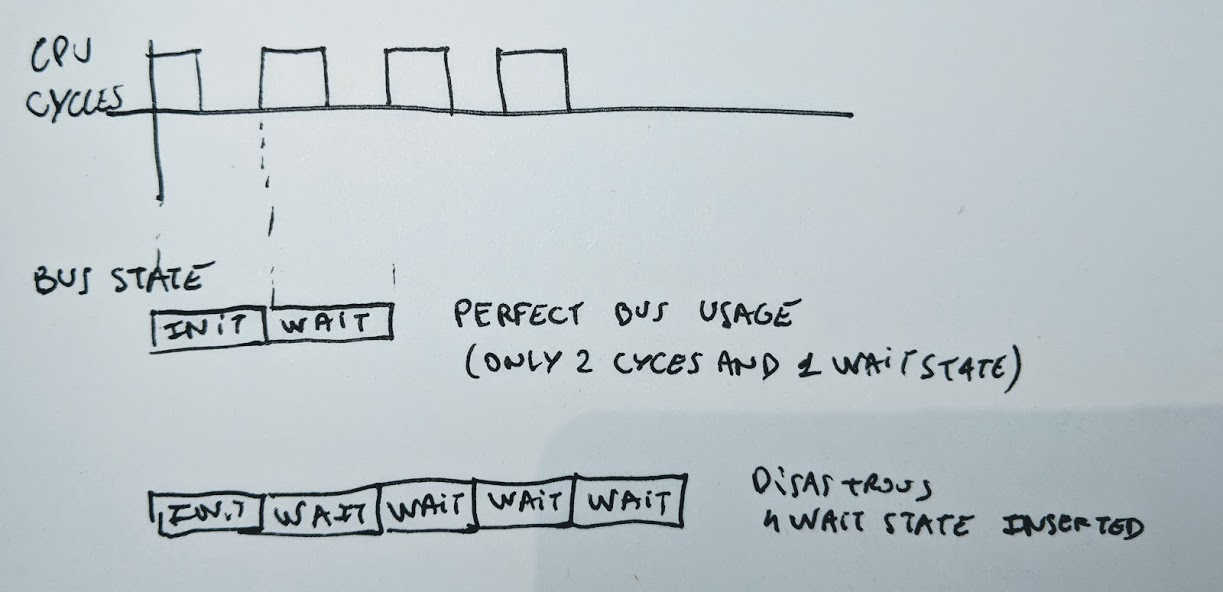 CPU
CYCLES
BUS STATE
INIT WAIT
PERFECT BUS USAGE
(ONLY 2 CYCES AND 1 WAIT STATE)
INIT WAIT WAIT WAIT WAIT
DISASTROUS
4 WAIT STATE INSERTED